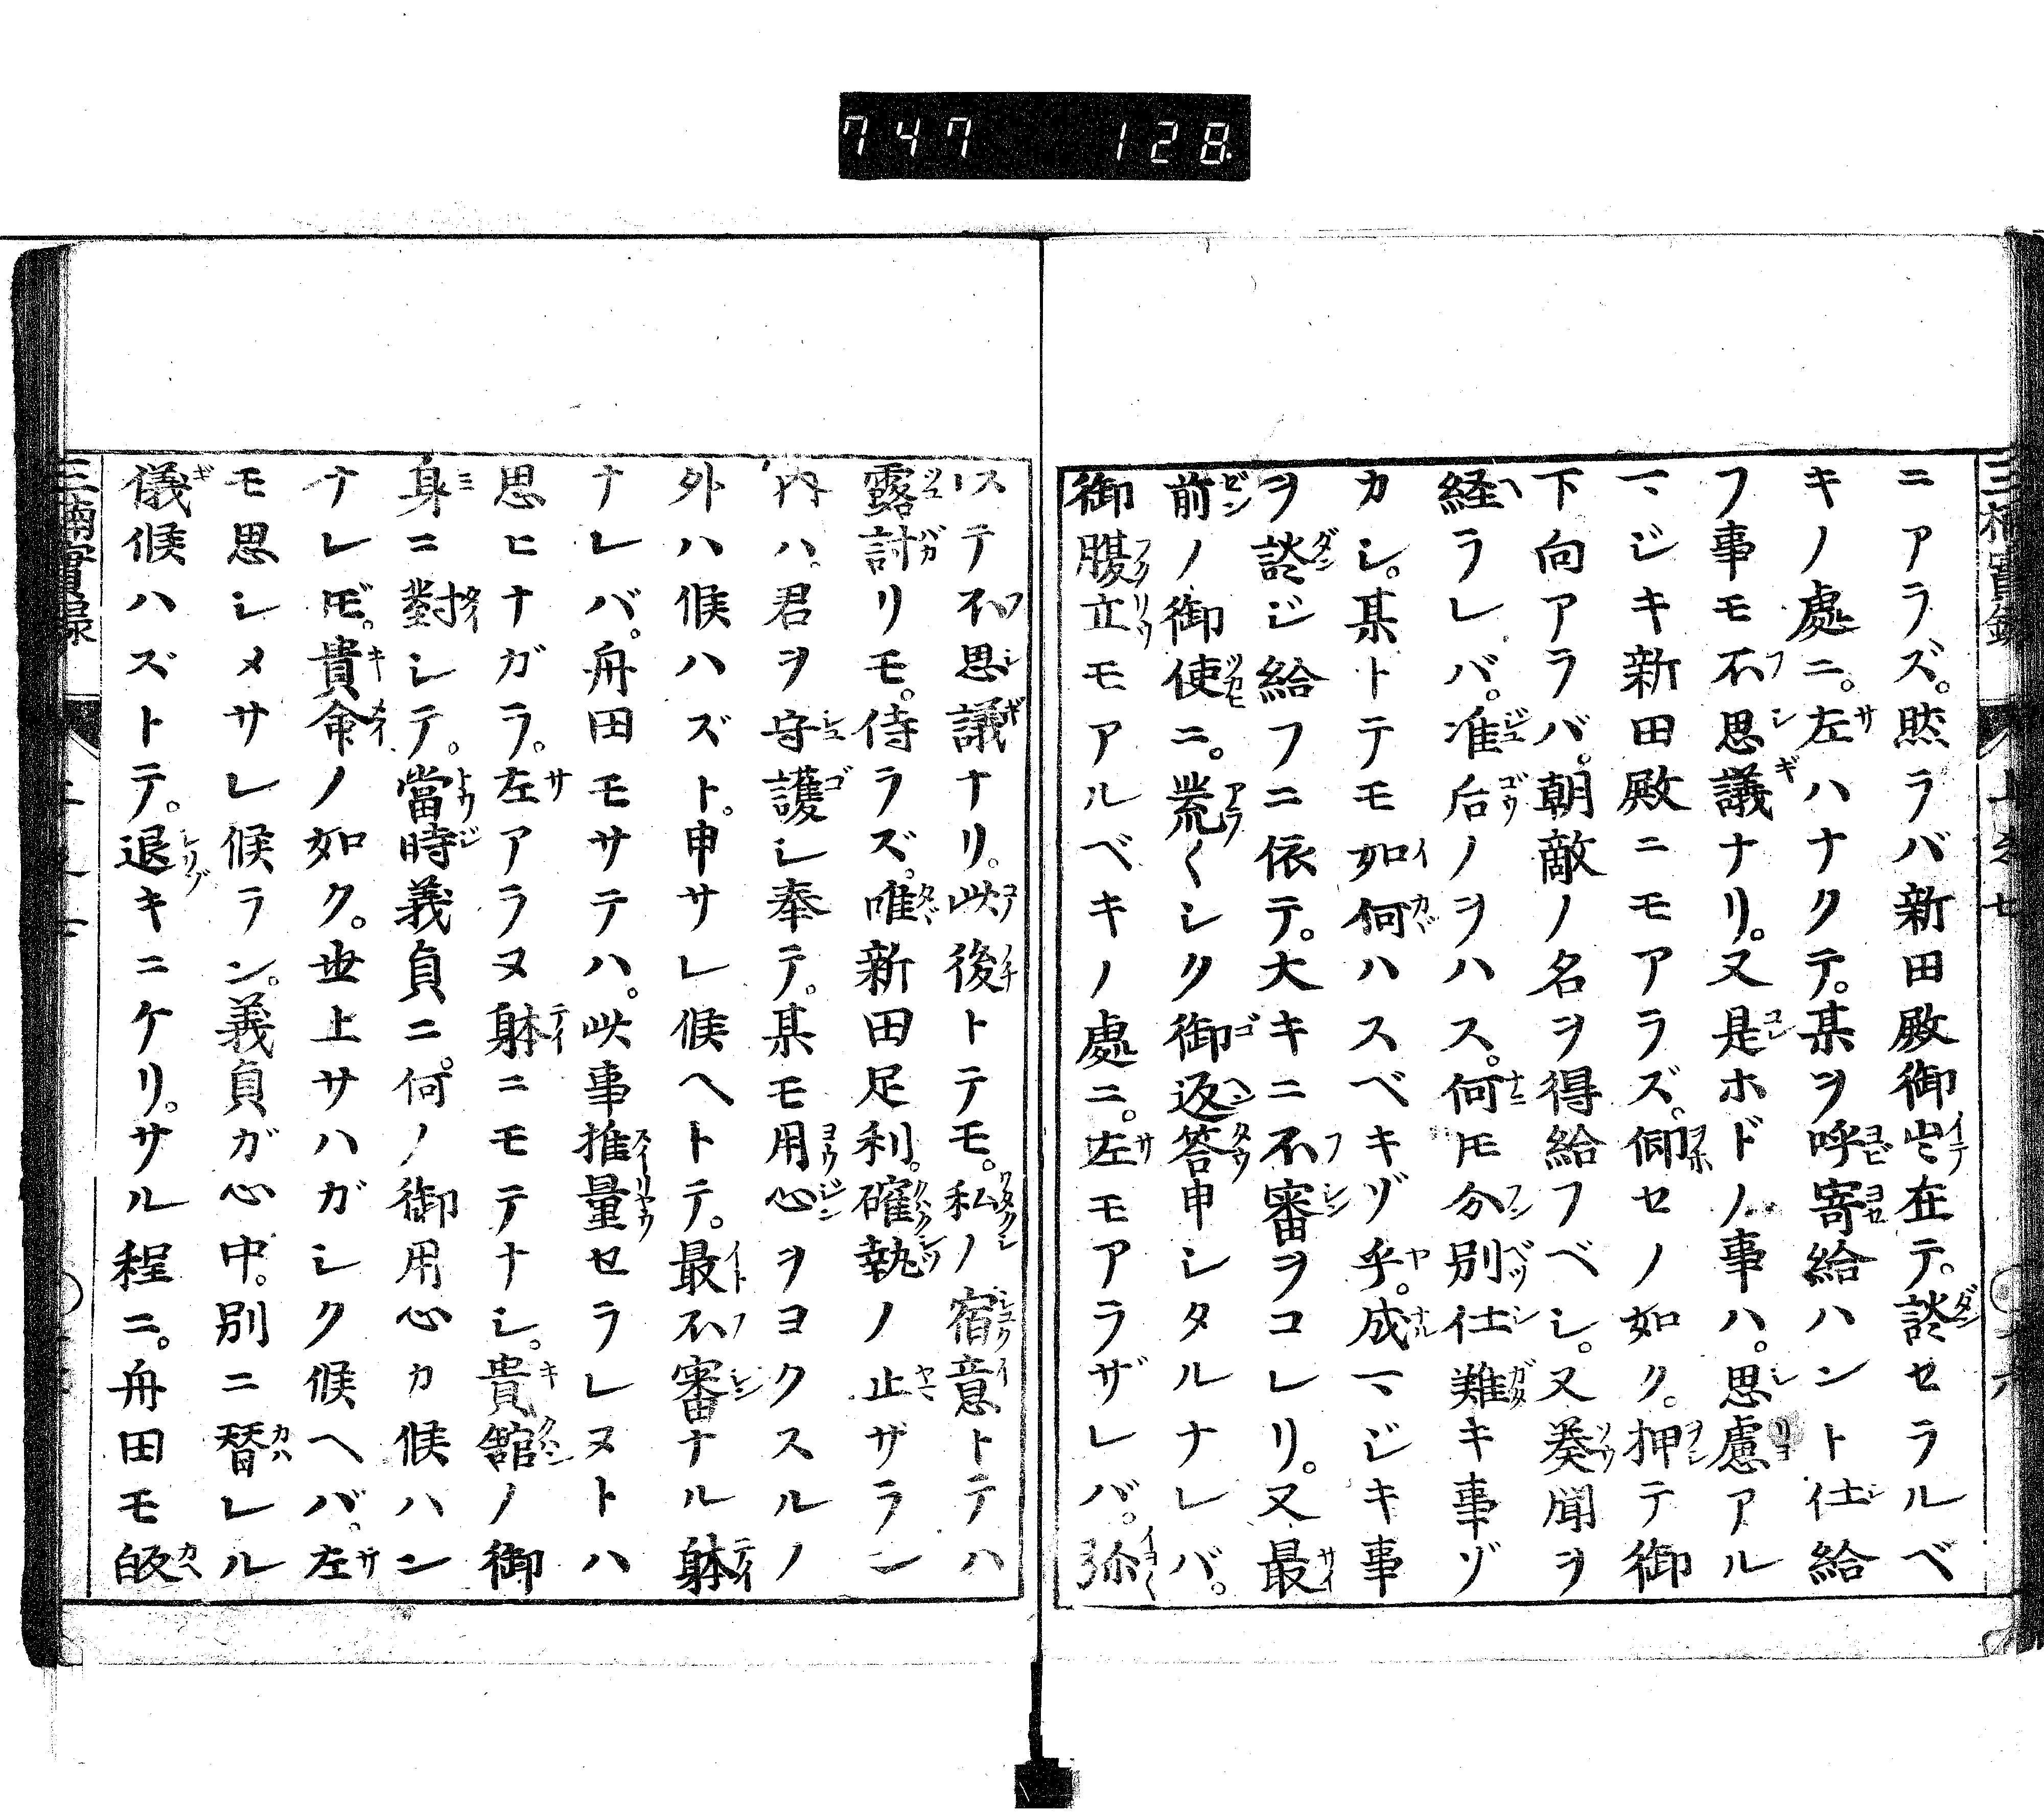 747 128
ニアラズ。然ラバ新田殿御出在テ。談セラルベ
キノ處ニ。左ハナクテ。某ヲ呼寄給ハント仕給
フ事モ不思議ナリ。又是ホドノ事ハ。思慮アル
マジキ新田殿ニモアラズ。仰セノ如ク。押テ御
下向アラバ。朝敵ノ名ヲ得給フベシ。又奏聞ヲ
経ラレバ。准后ノヲハス。何ヒ分別仕難キ事ゾ
カシ。某トテモ如何ハスベキゾ乎。成マジキ事
ヲ談ジ給フニ依テ。大キニ不審ヲコレリ。又最
前ノ御使ニ。荒くシク御返答申シタルナレバ。
御腹立モアルベキノ處ニ。左モアラザレバ。弥
ステ不思議ナリ。此後トテモ。私ノ宿意トテハ
露討リモ。侍ラズ。唯新田足利。確執ノ止ザラン
内ハ。君ヲ守護シ奉テ。某モ用心ヲヨクスルノ
外ハ候ハズト。申サレ候ヘトテ。最不審ナル躰
ナレバ。舟田モサテハ。此事推量セラレヌトハ
思ヒナガラ。左アラヌ躰ニモテナシ。貴舘ノ御
身ニ對シテ。當時義貞ニ。何ノ御用心カ候ハン
ナレ𪜈。貴命ノ如ク。世上サハガシク候ヘバ。左
モ思シメサレ候ラン。義貞ガ心中。別ニ替レル
儀候ハズトテ。退キニケリ。サル程ニ。舟田モ皈